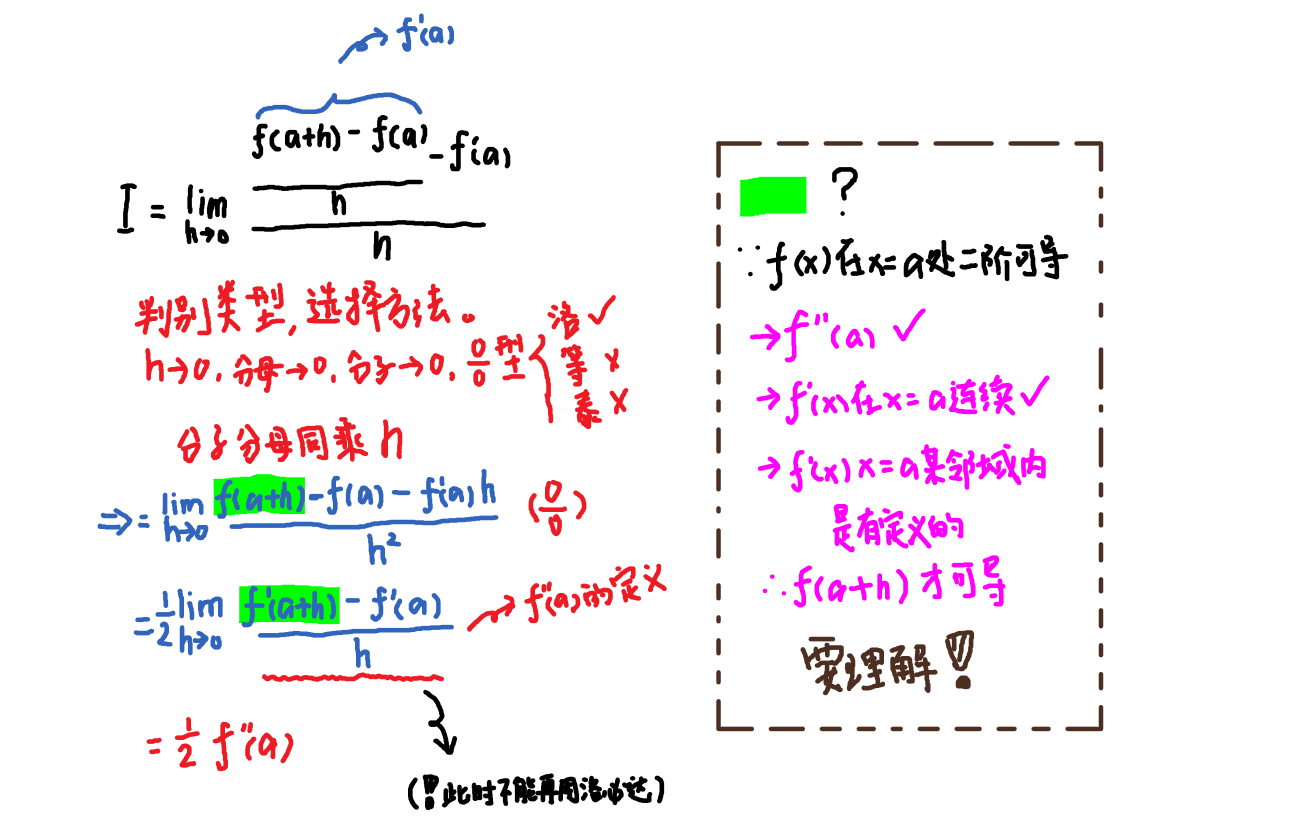 f'(a)
I = lim h→0 ((f(a+h) - f(a))/h - f'(a))/h
判别类型,选择方法。
h→0,分母→0,分子→0, 0/0 型 { 洛 ✓
等 ×
泰 ×
分子分母同乘 h
⇒ = lim h→0 (f(a+h) - f(a) - f'(a)h)/h² (0/0)
= 1/2 lim h→0 (f'(a+h) - f'(a))/h → f''(a)的定义
= 1/2 f''(a)
(!此时不能再用洛必达)
?
∵ f(x)在x=a处二阶可导
→ f''(a) ✓
→ f'(x)在x=a连续 ✓
→ f'(x) x=a某邻域内
是有定义的
∴ f(a+h) 才可导
要理解!